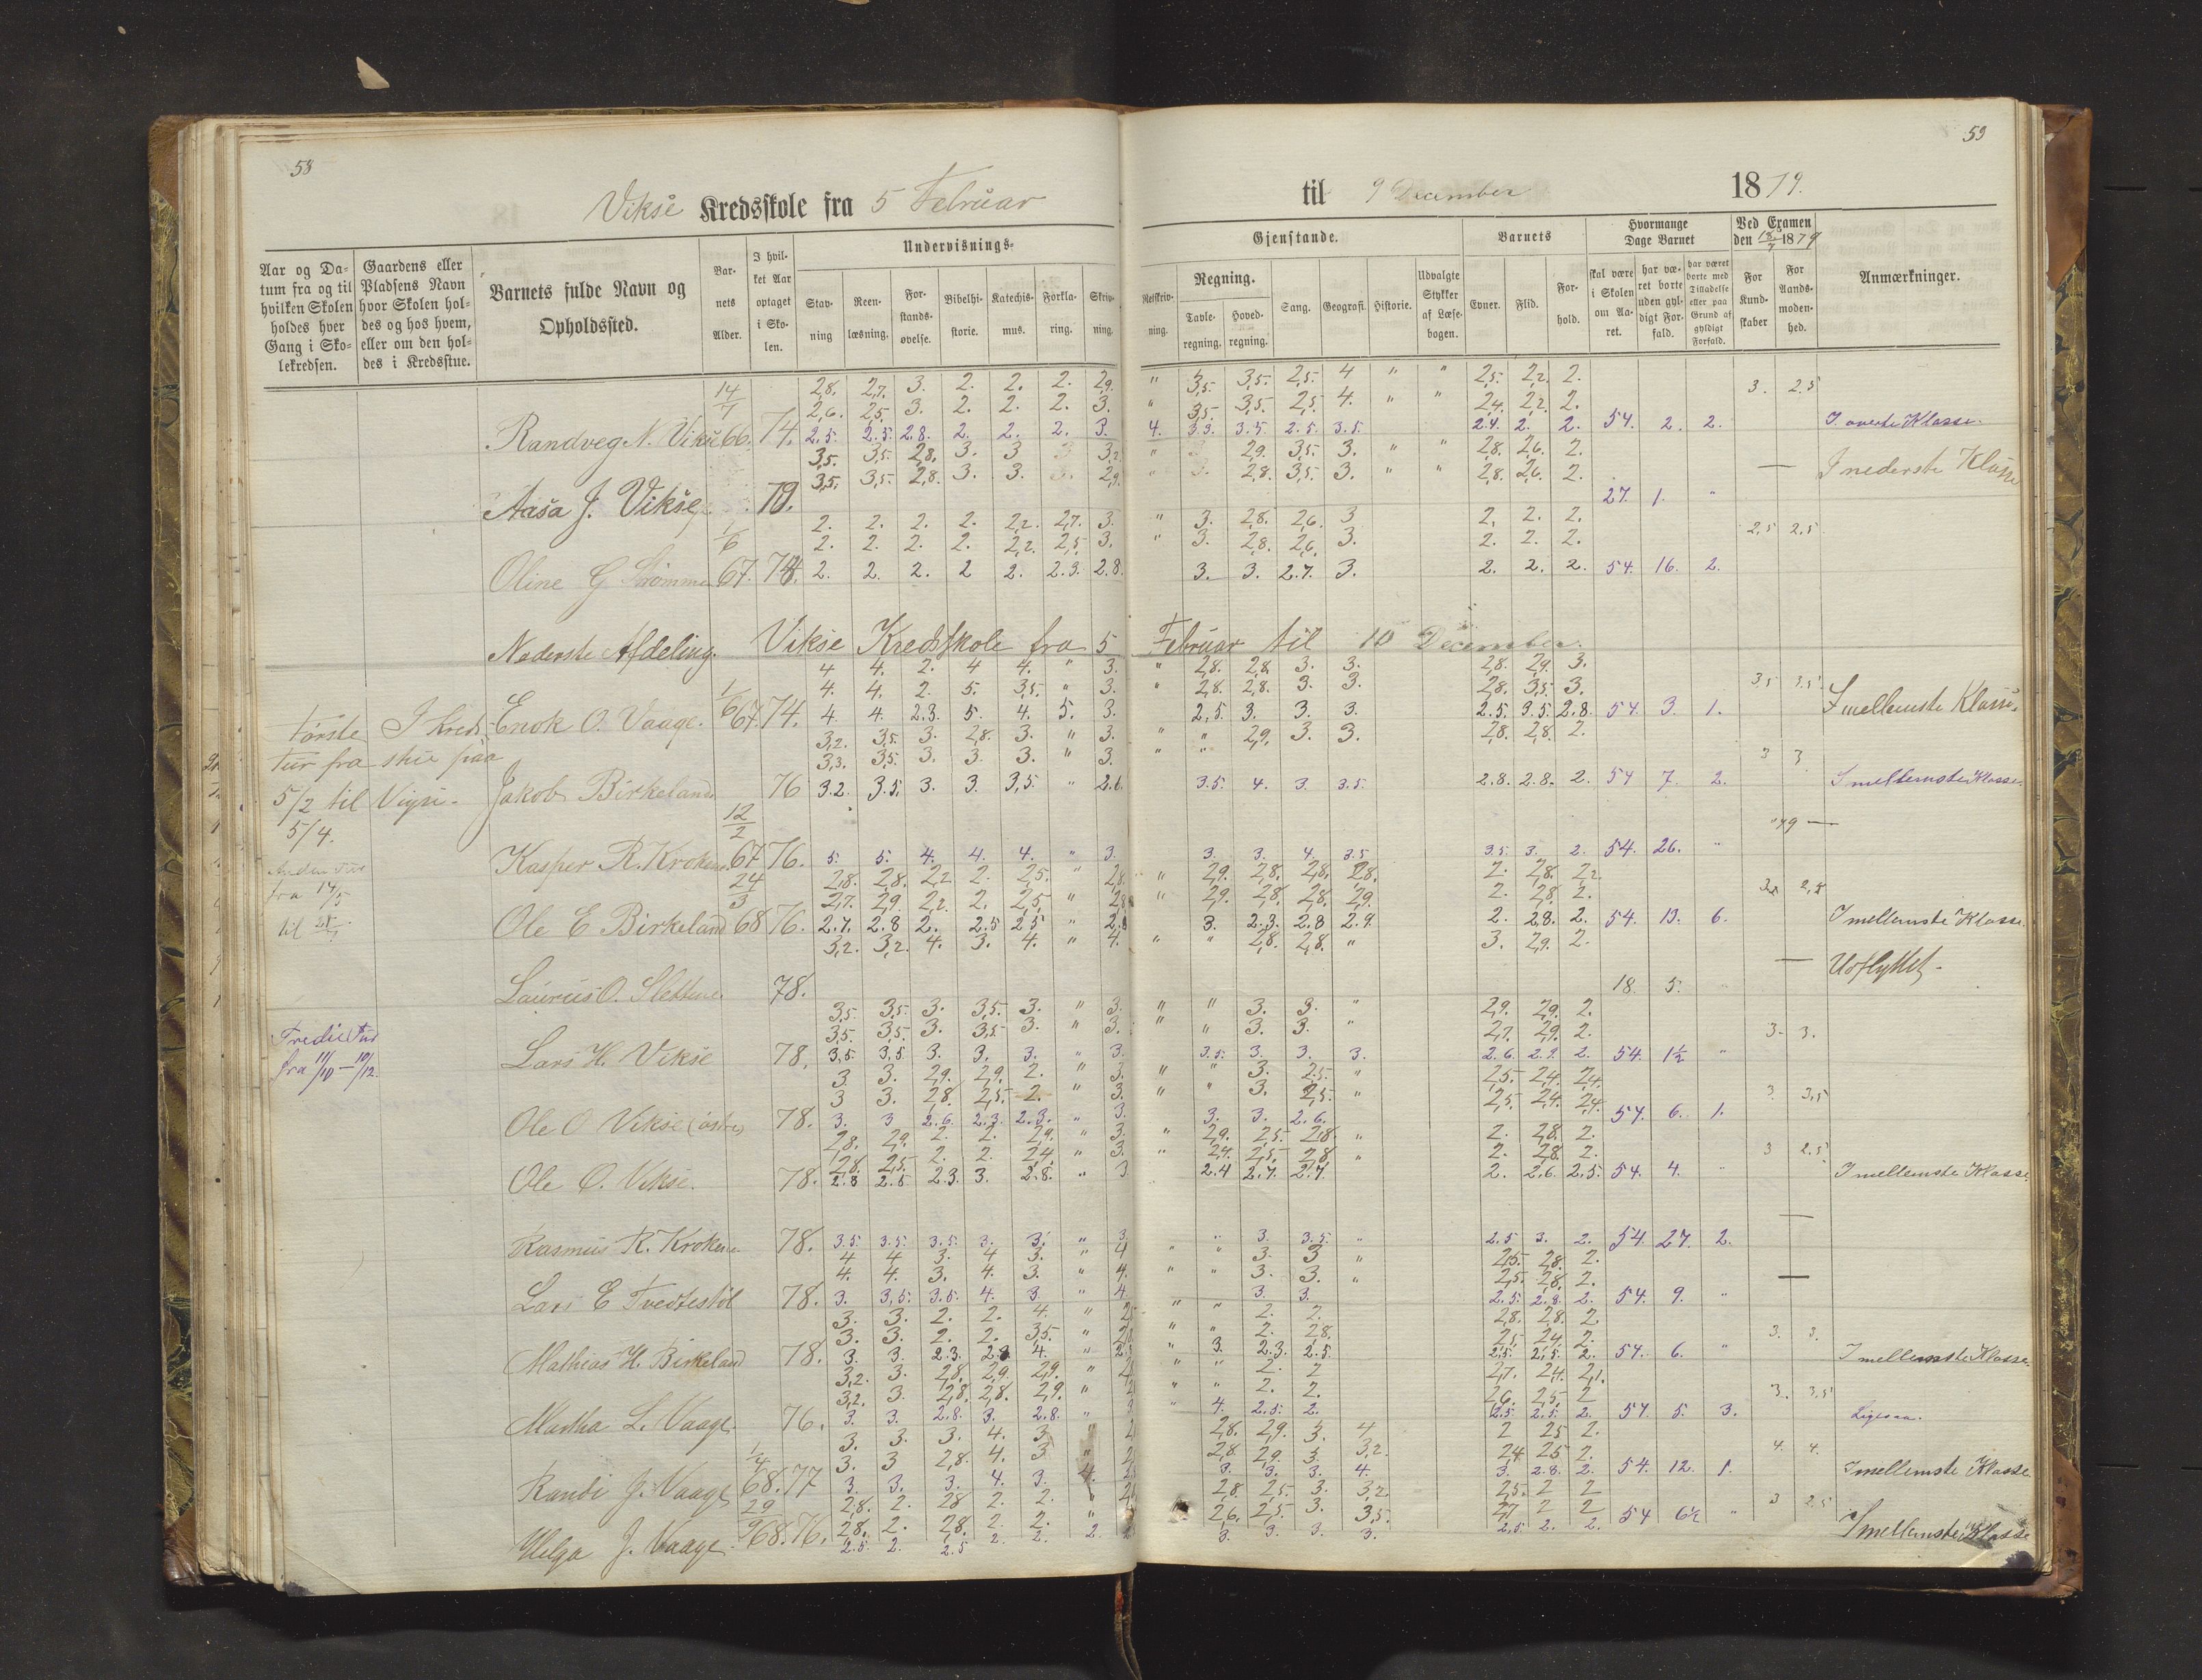 58
59
Vikse Kredsskole fra 5 Februar til 9 December 1879.
Undervisnings-
Gjenstande.
Barnets
Hvormange Dage Barnet
Ved Examen den 18/7 1879
Aar og Datum fra og til hvilken Skolen holdes hver Gang i Skolekredsen.
Gaardens eller Pladsens Navn hvor Skolen holdes og hos hvem, eller om den holdes i Kredsstue.
Barnets fulde Navn og Opholdssted.
Barnets Alder.
I hvilket Aar optaget i Skolen.
Stavning
Reenlæsning.
Forstandsøvelse.
Bibelhistorie.
Katechismus.
Forklaring.
Skrivning.
Retskrivning.
Regning.
Tavleregning.
Hovedregning.
Sang.
Geografi.
Historie.
Udvalgte Stykker af Læsebogen.
Evner.
Flid.
Forhold.
skal være i Skolen om Aaret.
har været borte uden gyldigt Forfald.
har været borte med Tilladelse eller paa Grund af gyldigt Forfald.
For Kundskaber
For Aandsmodenhed.
Anmærkninger.
14/7 2,8. 2,7. 3. 2. 2. 2. 2,9. " 3,5. 2,5. 4 " " 2,5. 2,2. 2. 3. 2.5
2,6. 2,5 3. 2. 2. 2. 3. " 3,5. 3,5. 2,5. 4. " " 2,4. 2,2. 2.
Randveg N. Vikse 66. 74. 2.5. 2.5. 2.8. 2. 2. 2. 3. 4. 3.3. 3.5 2.5. 3.5. 2.4. 2. 2. 54. 2. 2. I øverste Klasse.
3,5. 3,5. 2,8. 3. 3 3 3,2 " 3 2,9. 3,5. 3. " " 2,8. 2,6. 2.
3,5. 3,5. 2,8. 3. 3. 3. 2,9. " 3. 2,8. 3,5. 3. " " 2,8. 2,6. 2. — I nederste Klasse
Aasa J. Vikse 79. 27. 1. "
2. 2. 2. 2. 2,2. 2,7. 3. " 3. 2,8. 2,6. 3 2. 2. 2.
1/6 2. 2. 2. 2. 2,2. 2,5. 3. " 3. 2,8. 2,6. 3. 2. 2. 2. 2,5 2,5
Oline G Strømme 67. 74. 2. 2. 2. 2 2. 2.3. 2.8. 3. 3. 2.7. 3. 2. 2. 2. 54. 16. 2.
Nederste Afdeling. Vikse Kredsskole fra 5 Februar til 10 December.
4 4. 2. 4 4. " 3. " 2,8. 2,8. 3. 3. 2,8. 2,9. 3.
1/6 4. 4. 2. 5. 3,5. " 3. " 2,8. 2,8. 3. 3. 2,8. 3,5. 3. 3,5 3.5
Første Tur fra 5/2 til 5/4.
I Kredsstue paa Vigse.
Enok O. Vaage. 67. 74. 4. 4. 2.3. 5. 4. 5. 3. 2,5. 3. 3. 3. 2.5. 3.5. 2.8. 54. 3. 1. I mellemste Klasse.
3,2. 3,5. 3. 2,8. 3. " 3. " " 2,9. 3. 3. 2,8. 2,8. 2.
3,3. 3,5. 3. 3. 3. " 3. " " 3 3
Jakob Birkeland 76 3.2. 3.5. 3. 3. 3,5 " 2.6 3.5. 4. 3. 3.5. 2.8. 2.8. 2. 54 7. 2. I mellemste Klasse.
12/2
Kasper R. Kroken 67 76. 5. 5. 4. 4. 4. " 3. 3. 3. 4. 3.5 3.5. 3. 2. 54. 26. "
Anden Tur fra 14/5 til
24/3 2,8. 2,8. 2,2. 2. 2,5. " 2,8. " 2,9. 2,8. 2,8. 2,8. 2. 2,8. 2,2.
2,7. 2,9. 2,2. 2. 2,5. " 2,8 " 2,9. 2,8. 2,8. 2,9. 2. 2,8. 2.
Ole E Birkeland 68 76. 2.7. 2.8 2. 2.5 2.5 " 2.8 3. 2.3. 2.8 2.9. 2. 2.8. 2. 54. 13. 6. I mellemste Klasse.
3,2. 3,2. 4. 3. 4. " 4. " " 2,8. 2,8. " 3. 2,9. 2. —
Laurits O. Slettene 78. 18. 5. Udflyttet.
3,5. 3,5. 3. 3,5. 3. " 3. " " 3. 3. " 2,9. 2,9. 2.
3,5. 3,5. 3. 3,5. 3. " 3. " " 3. 3. " 2,7. 2,9. 2. 3. 3.
Tredie Tur fra 11/10 — 10/12.
Lars H. Vikse 78. 3,5 3,5 3. 3. 3. " 3. 3.5. 3. 3. 3. 2.6. 2.9. 2. 54. 1½ "
3. 3. 2,9. 2,9. 2. " 3. " " 3. 2,5. " 2,5. 2,4. 2,4.
3 3. 2,8. 2,5. 2. " 3. " " 3. 2,5. " 2,5. 2,4. 2,4. 3. 3,5
Ole O Vikse (østre) 78. 3. 3 2.6. 2.3. 2.3. " 3. 3. 3. 2.6. 54. 6. 1.
2,8. 2,9. 2. 2. 2,9. " 3. " 2,9. 2,5. 2,8. " 2. 2,8. 2.
2,8. 2,5. 2. 2. 2,4. " 3. " 2,4. 2,5. 2,8. " 2. 2,8. 2. 3 2.5
Ole O. Vikse. 78. 2.8 2.5 2.3. 3. 2.8. " 3 2.4 2.7. 2.7. 2. 2.6. 2.5. 54. 4. " I mellemste Klasse.
Rasmus R. Kroken 78. 3.5. 3.5. 3.5. 3. 3. " 3. " 3. 3.5. " 2.5 3. 2. 54. 27. 2. —
4 4 3. 4 3. " 4 " " 3. 3 " 2,5. 2,8. 2.
4. 4. 3. 4. 3. " 4. " " 3. 3. " 2,5. 2,8. 2. —
Lars E Tvedtestøl 78. 3. 3,5. 3.5. 4. 3. " 4. 3. 3. 2.5. 2.8. 2. 54. 9. "
3. 3. 2. 2. 4. " " " 2. 2. 2,8. 2,8. 2.
3. 3. 2. 2. 3,5. " " " 2. 2,8. 2,5. 2,4. 2. 3. 3.
Mathias H. Birkeland 78. 3. 3. 2.3. 2.8 4. " " 3. 2.3. 2.5. 2,5. 2,5. 2. 54. 6. " I mellemste Klasse.
3,2. 3. 2,8. 2,9. 2,9. " " " 2. 2 2,7. 2,4. 2,1.
3,2. 3. 2,8. 2,8. 2,9. " " " 2. 2. 2,6. 2,5. 2 3. 3,5
Martha L. Vaage. 76. 3. 3. 2.8. 3. 2.8. " " 4. 2.5. 2. 2.5. 2.5. 2. 54. 5. 3. Ligesaa.
3. 3. 3. 4. 3 " 2,8. 2,9. 3. 4 2 2,5 2.
1/4 3. 3 2,8. 4. 3 " 2,8. 2,9. 3. 3,2. 2,4 2,5 2. 4. 4.
Randi J. Vaage 68. 77 3. 3. 3. 4. 3. 4. 3. 3. 3. 4. 3. 2.8. 2. 54. 12. 1. I mellemste Klasse.
29/9 2,8. 2. 2,8 2. 2. " 2,8. 2,5. 3. 3,2. 2,5. 2 2
2,8. 2. 2,8. 2. 2. " 2,6. 2,5. 3. 3,5. 2,7 2 2 3 2.5
Helga J. Vaage. 68. 76. 2.5. 2. 2.5 2. 2. 2. 3. 3. 3. 3. 2,5. 2. 2. 54 6½ " I mellemste Klasse